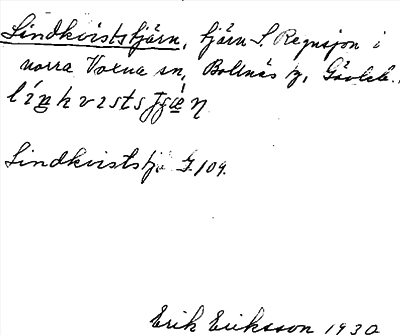 Lindkviststjärn, tjärn S. Regnsjön i
norra Voxna sn, Bollnäs tg, Gävleb.
Lindkviststj. G. 109.
Erik Eriksson 1930